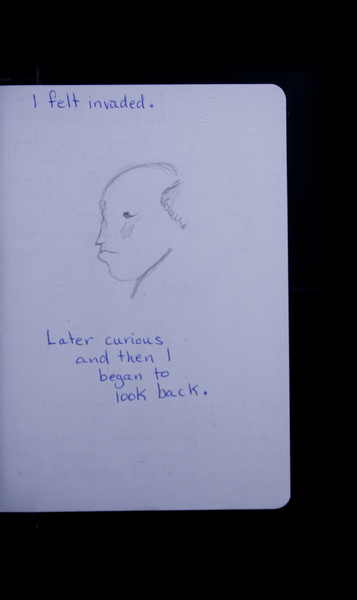 I felt invaded.
Later curious
and then I
began to
look back.